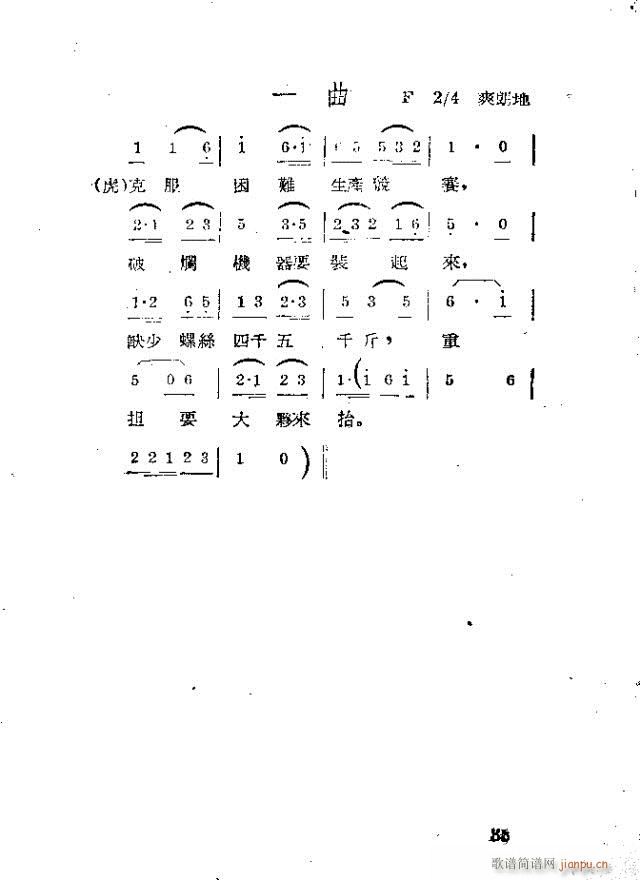 一曲 F 2/4 爽朗地
1 1 6 | i 6·i | 6 5 5 3 2 | 1 · 0 |
(虎)克服 困難 生產競 賽，
2·1 2 3 | 5 3·5 | 2 3 2 1 6 | 5 · 0 |
破爛機器要裝起來，
1·2 6 5 | 1 3 2·3 | 5 3 5 | 6 · i |
缺少螺絲四千五千斤，重
5 0 6 | 2·1 2 3 | 1·(i 6 i | 5 6 |
担要大夥來抬。
2 2 1 2 3 | 1 0 ) ||
歌谱简谱网 jianpu.cn